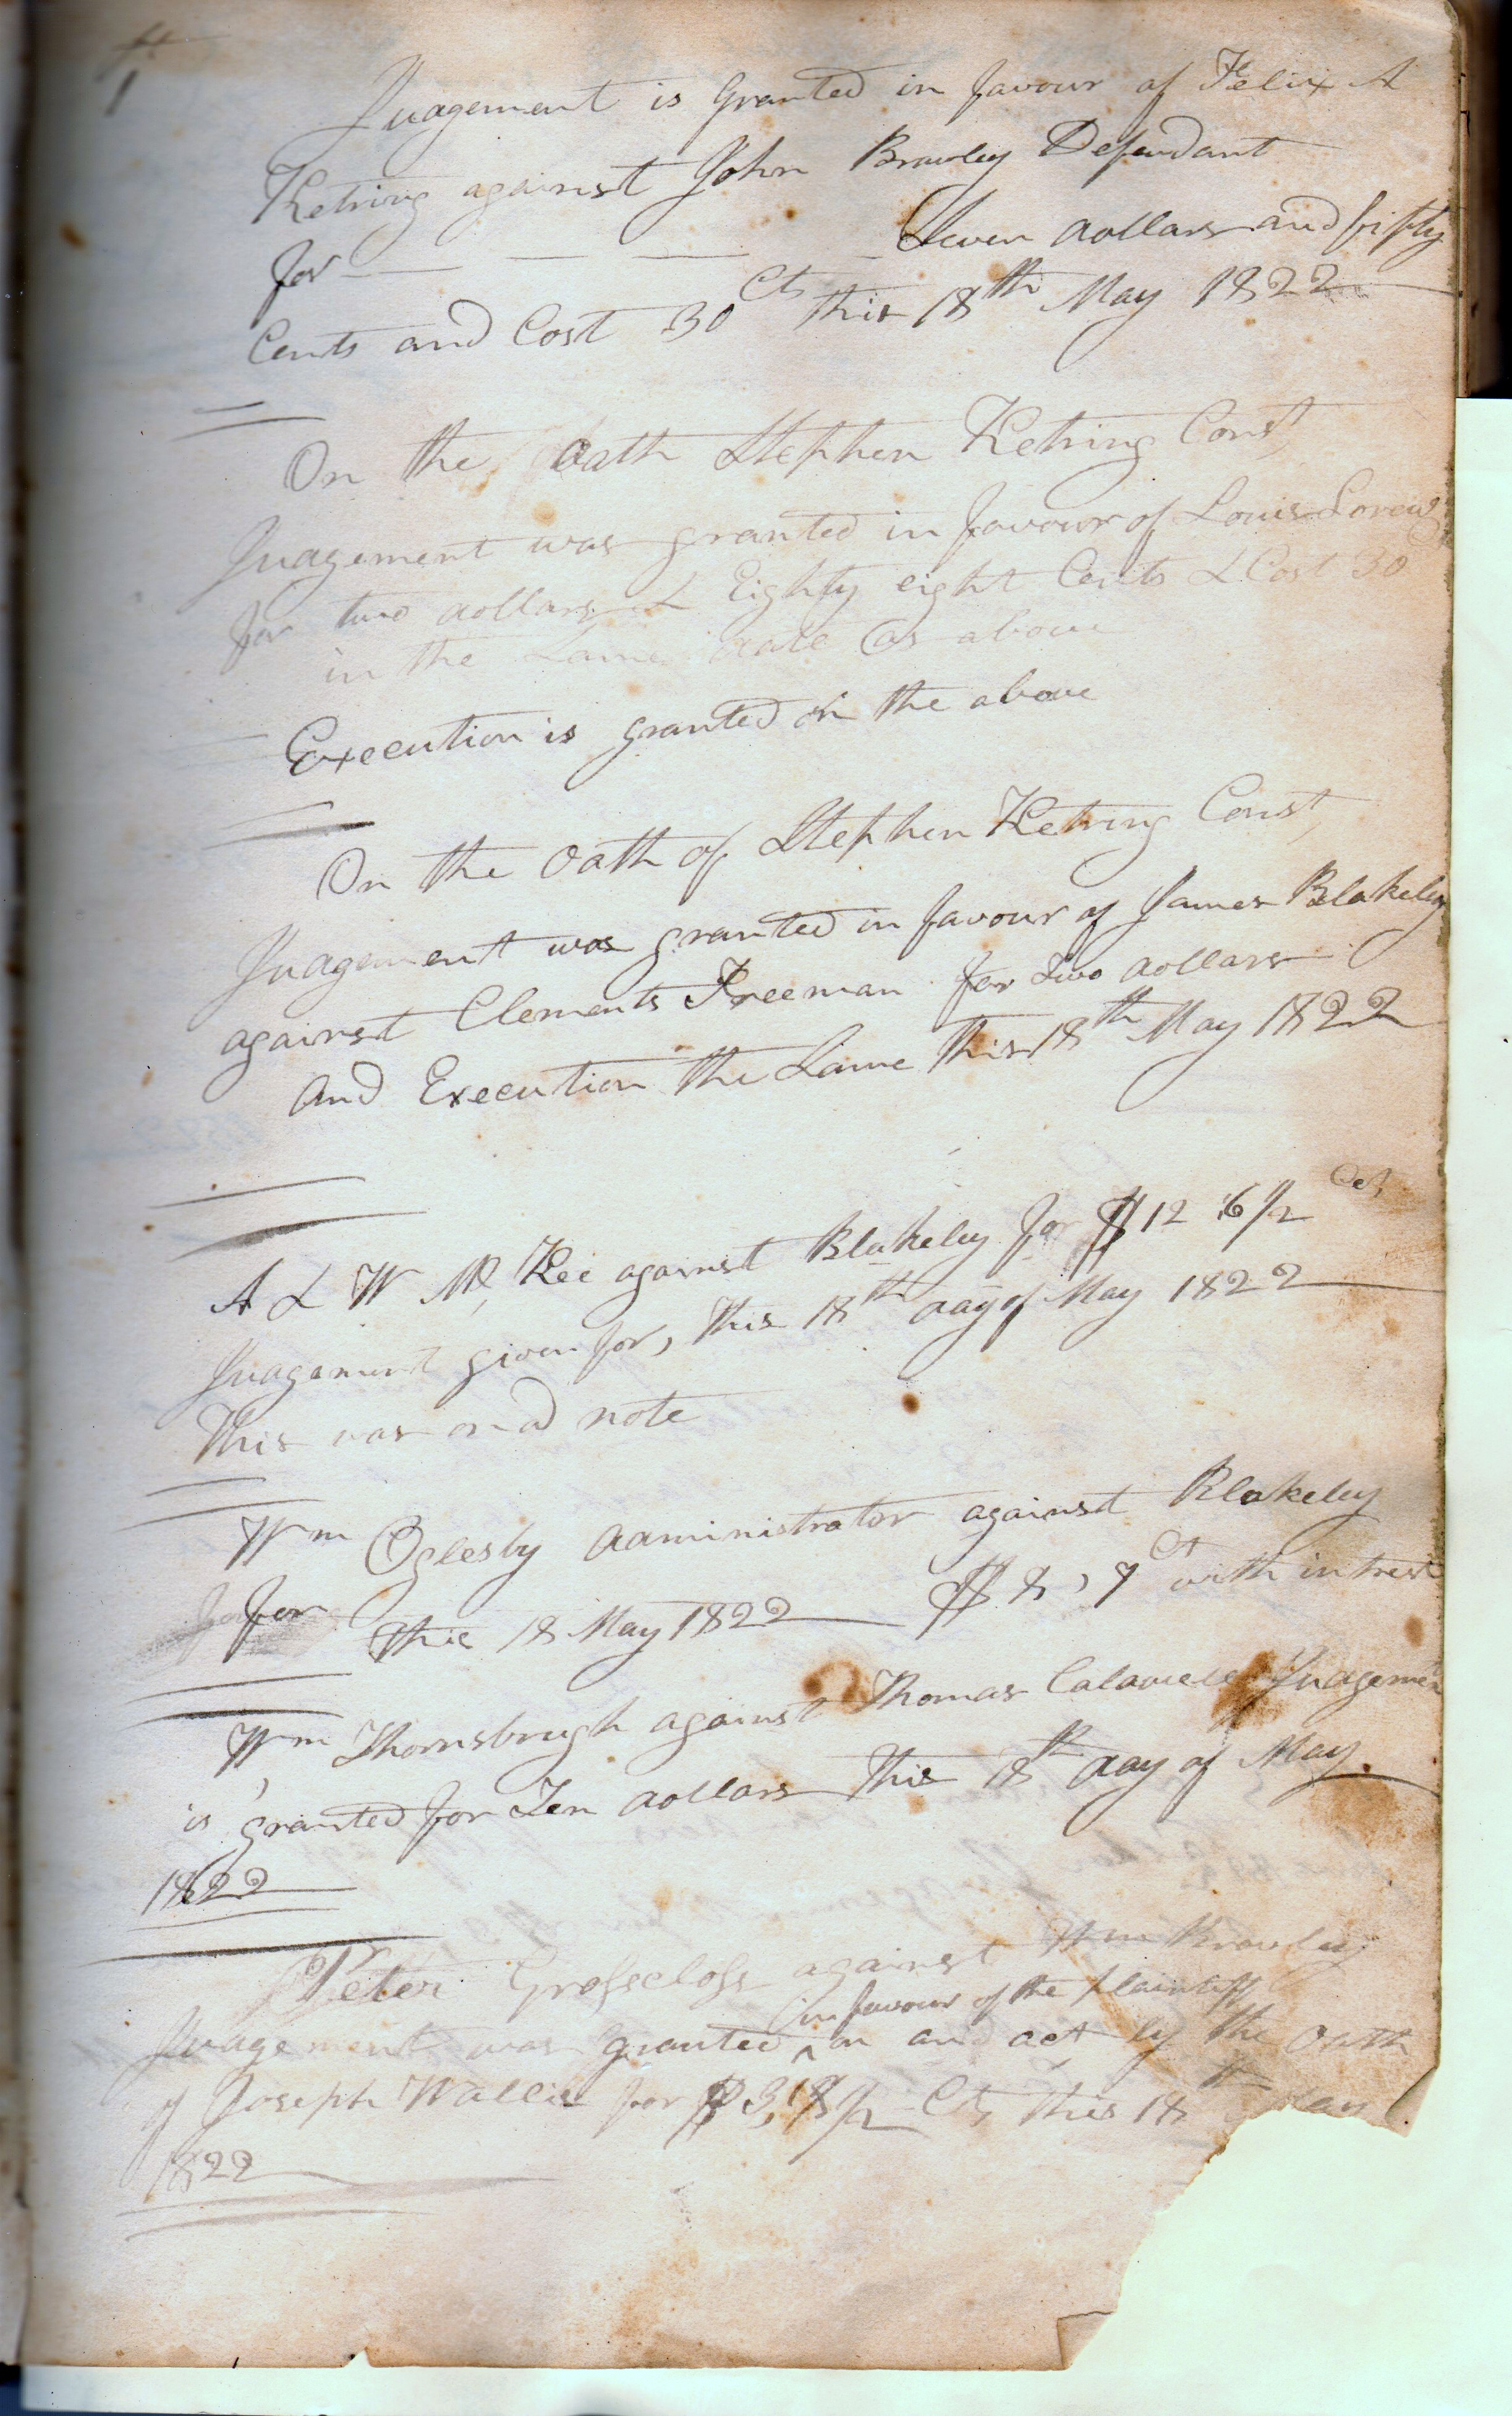 1
Judgement is Granted in favour of Felix A
Ketring against John Brawley Defendant
for — — — — Seven dollars and fifty
Cents and Cost 30 Cts this 18th May 1822
On the Oath Stephen Ketring Const
Judgement was granted in favour of Louis
for two dollars & Eighty eight Cents & Cost 30
in the Same date as above
Execution is granted on the above
On the Oath of Stephen Ketring Const
Judgement was granted in favour of James Blakeley
against Clements Freeman for Two dollars
and Execution the Same this 18th May 1822
A & W Mc Kee against Blakeley for $12 6 1/2 Cts
Judgement given for, this 18th day of May 1822
This was on a note
Wm Oglesby administrator against Blakeley
for this 18 May 1822 — $8, 7 Ct with intrest
Wm Thornsbrugh against Thomas Judgemen
is granted for Ten dollars this 18th day of May.
1822
Peter Grosscloss against Wm Brawley
in favour of the plaintiff
Judgement was granted ^ on and act by the Oath
of Joseph Wallis for $3,18 1/2 Cts this 18th May
1822